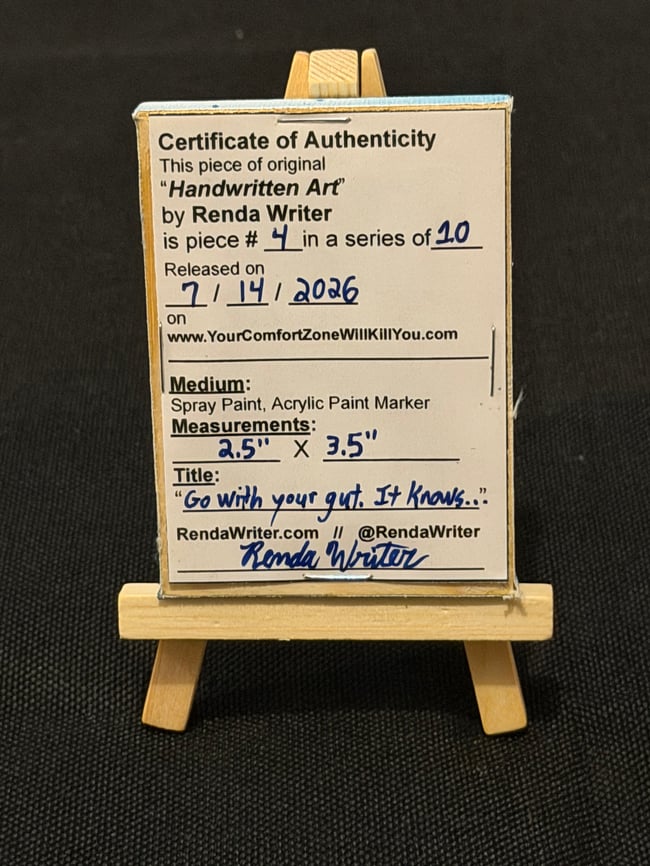 Certificate of Authenticity
This piece of original
“Handwritten Art”
by Renda Writer
is piece # 4 in a series of 10
Released on
7 / 14 / 2026
on
www.YourComfortZoneWillKillYou.com
Medium:
Spray Paint, Acrylic Paint Marker
Measurements:
2.5" X 3.5"
Title:
“Go with your gut. It knows...”
RendaWriter.com // @RendaWriter
Renda Writer